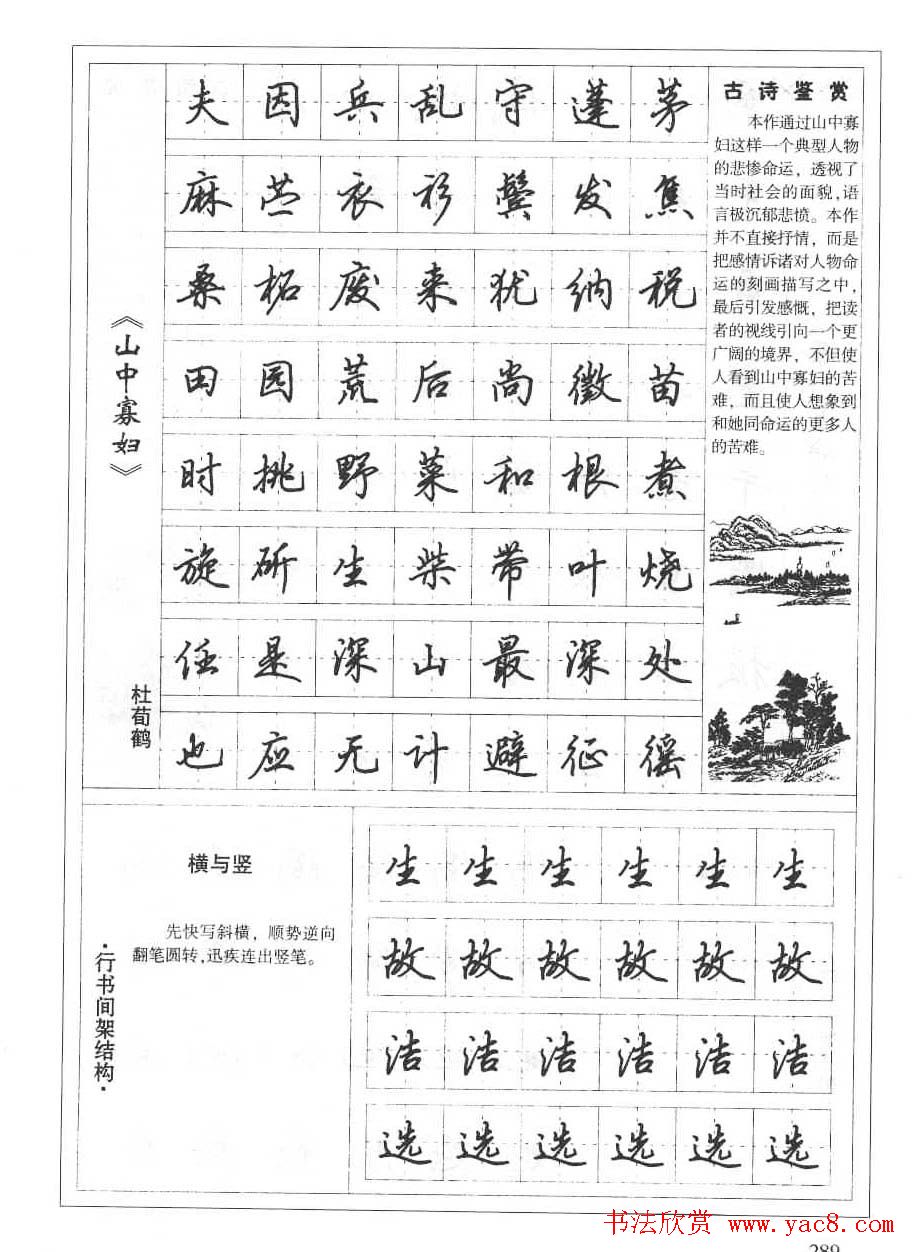 《山中寡妇》
杜荀鹤
夫因兵乱守蓬茅
麻苎衣衫鬓发焦
桑柘废来犹纳税
田园荒后尚徵苗
时挑野菜和根煮
旋斫生柴带叶烧
任是深山最深处
也应无计避征徭
古诗鉴赏
本作通过山中寡
妇这样一个典型人物
的悲惨命运，透视了
当时社会的面貌,语
言极沉郁悲愤。本作
并不直接抒情，而是
把感情诉诸对人物命
运的刻画描写之中,
最后引发感慨，把读
者的视线引向一个更
广阔的境界，不但使
人看到山中寡妇的苦
难，而且使人想象到
和她同命运的更多人
的苦难。
·行书间架结构·
横与竖
先快写斜横，顺势逆向
翻笔圆转,迅疾连出竖笔。
生生生生生生
故故故故故故
洁洁洁洁洁洁
选选选选选选
书法欣赏 www.yac8.com
289